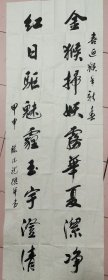 喜迎猴年新春
金猴掃妖霧華夏潔净
红日驅魅霾玉宇澄清
甲申